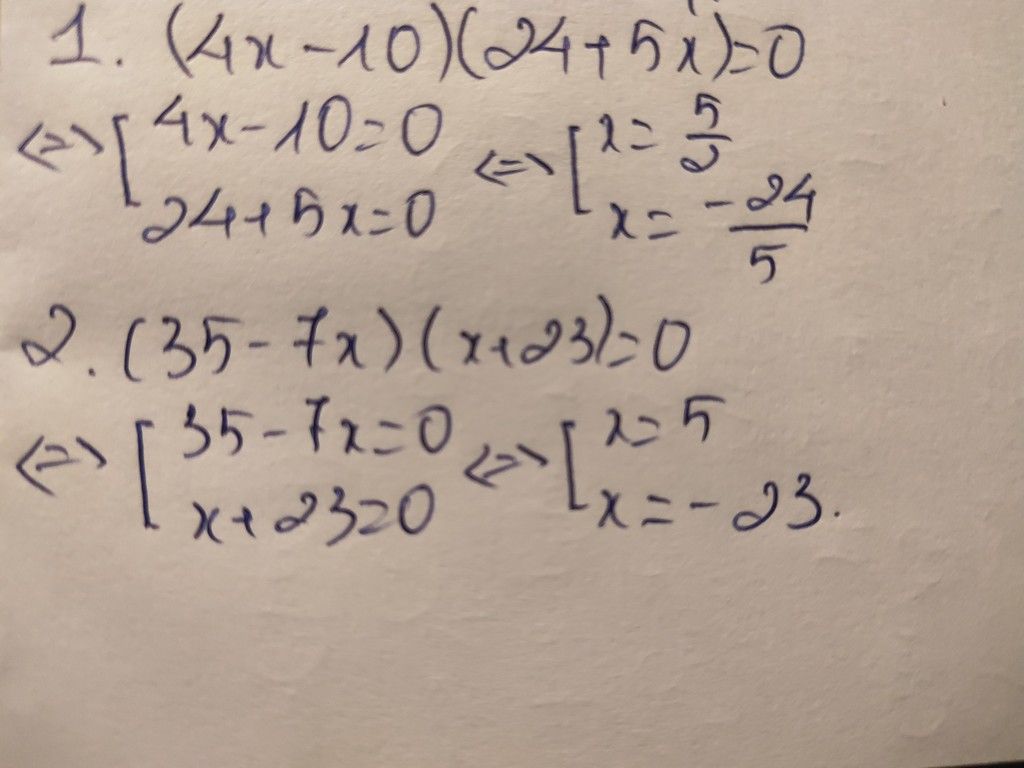 1. (4x-10)(24+5x)=0
⇔ [ 4x-10=0 ⇔ [ x= 5/2
24+5x=0 x= -24/5
2. (35-7x)(x+23)=0
⇔ [ 35-7x=0 ⇔ [ x=5
x+23=0 x=-23.